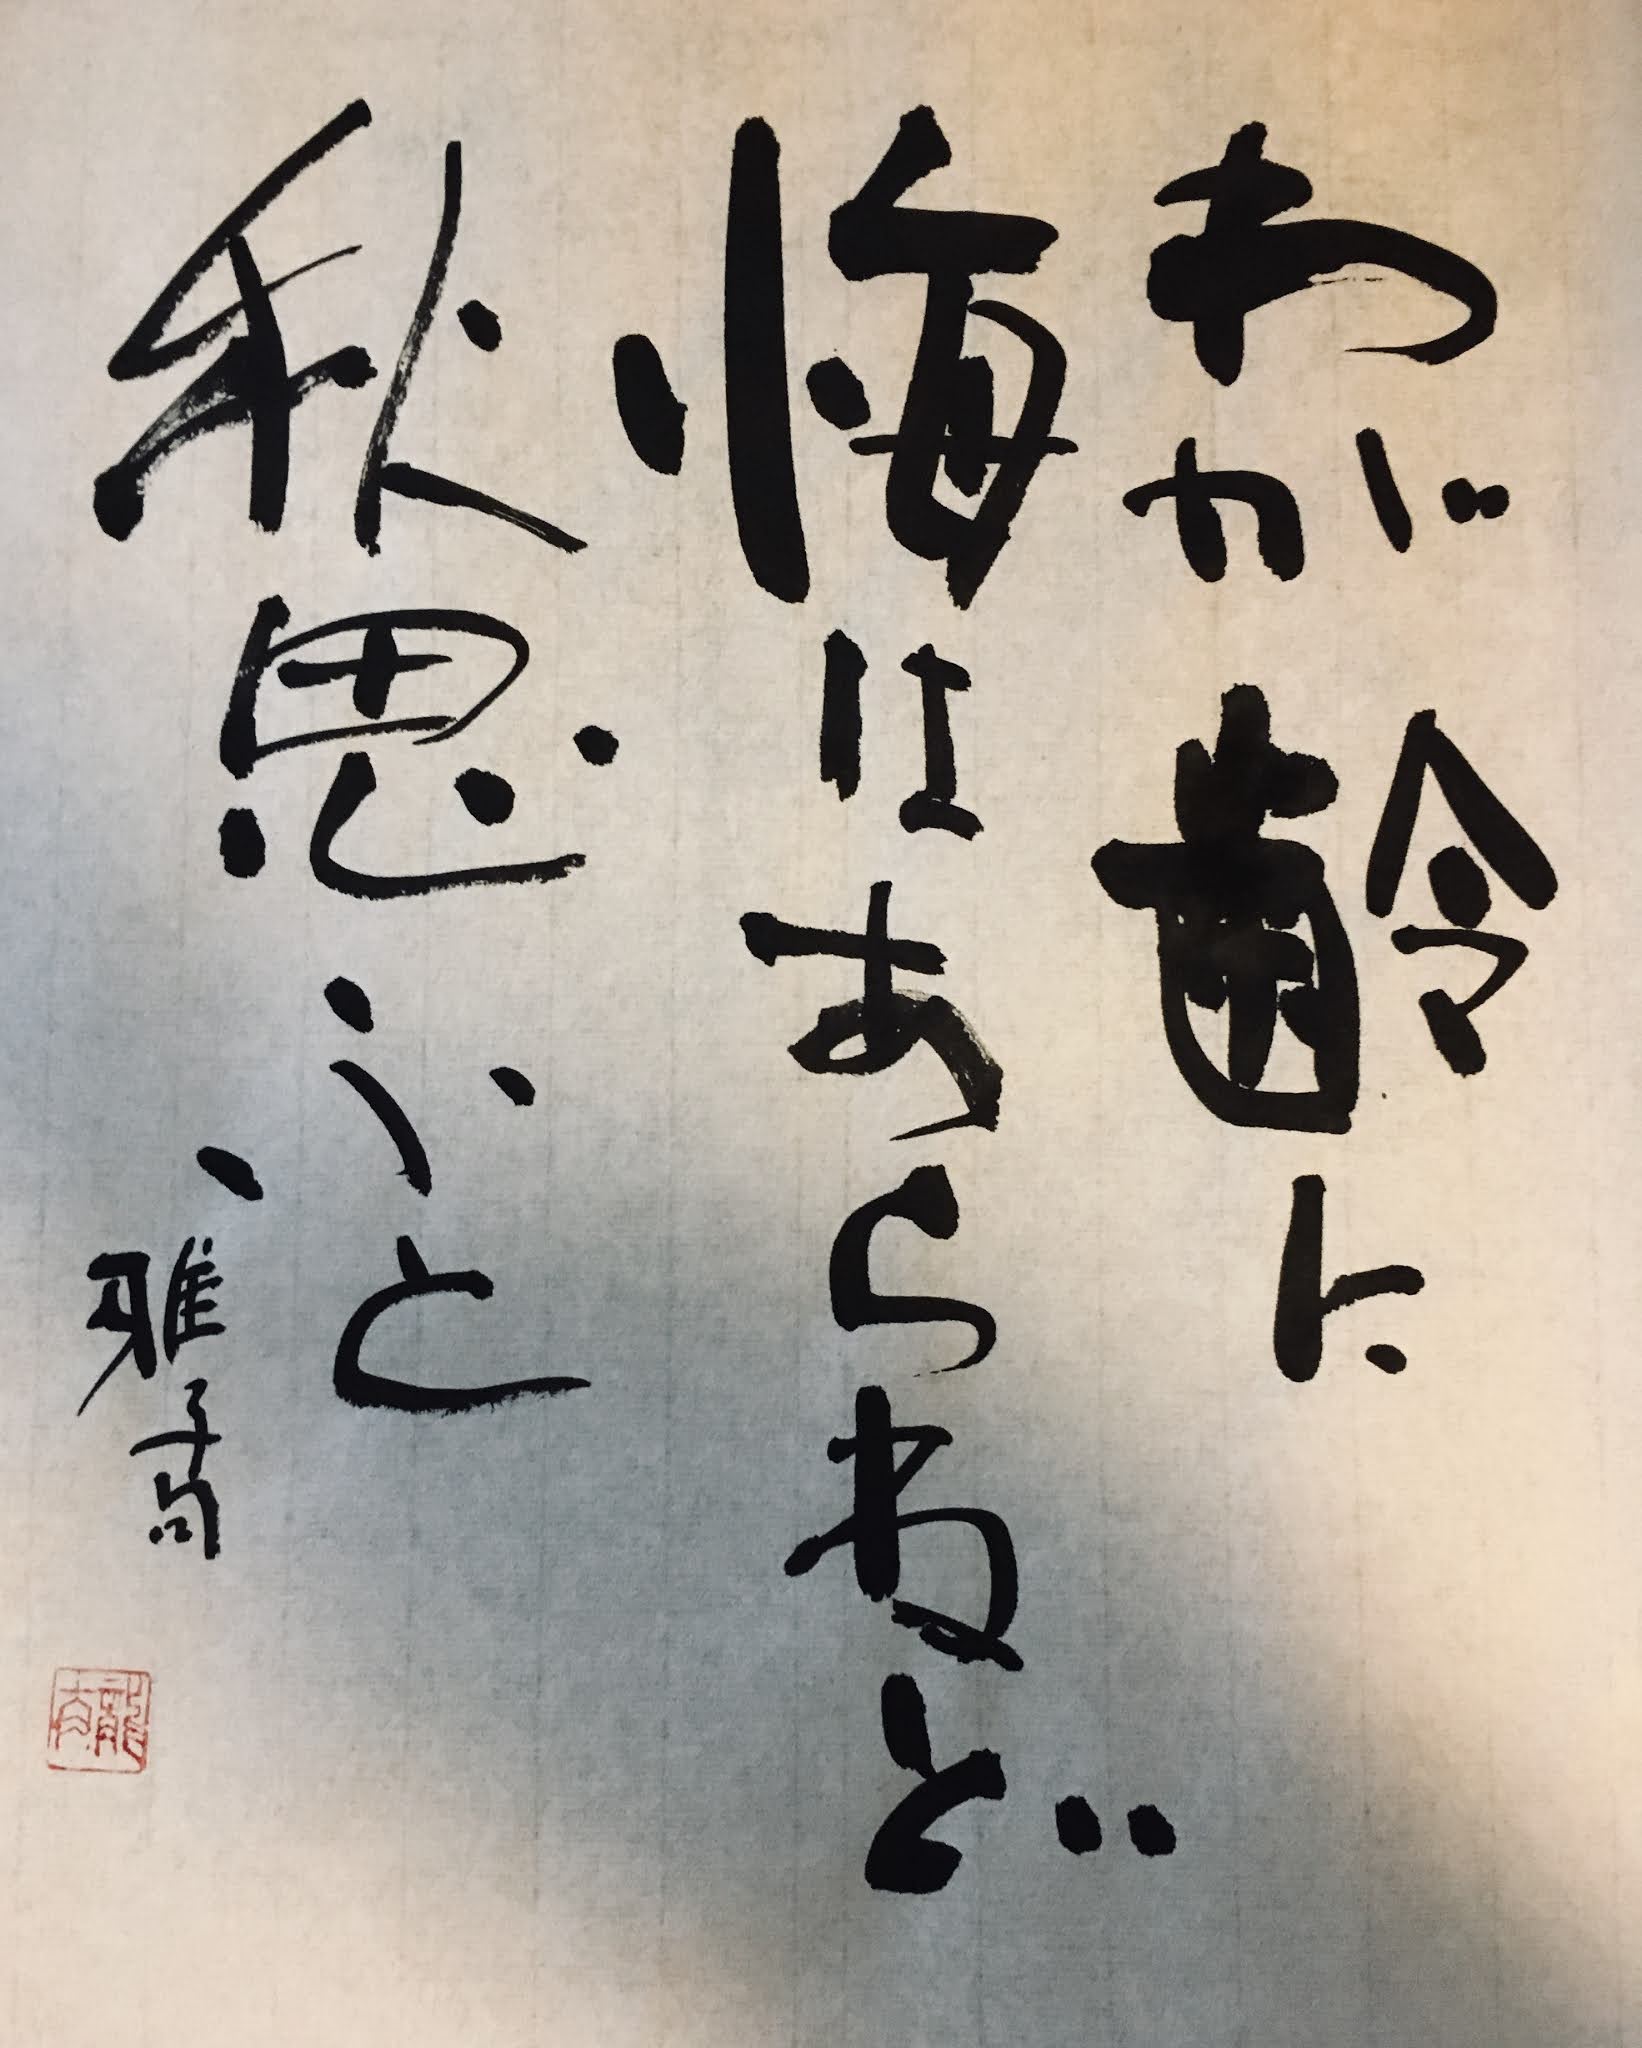 わが齢に
悔はあらねど
秋思ふと
雅子句